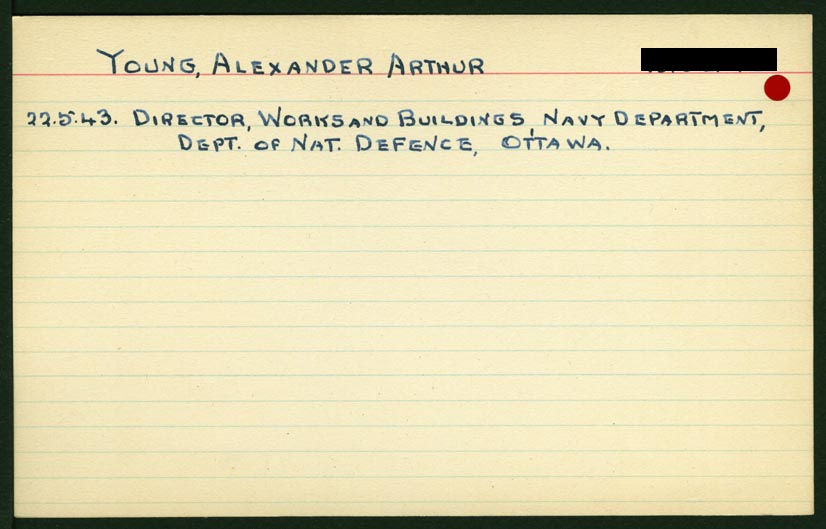 YOUNG, ALEXANDER ARTHUR
22.5.43. DIRECTOR, WORKS AND BUILDINGS, NAVY DEPARTMENT,
DEPT. OF NAT. DEFENCE, OTTAWA.